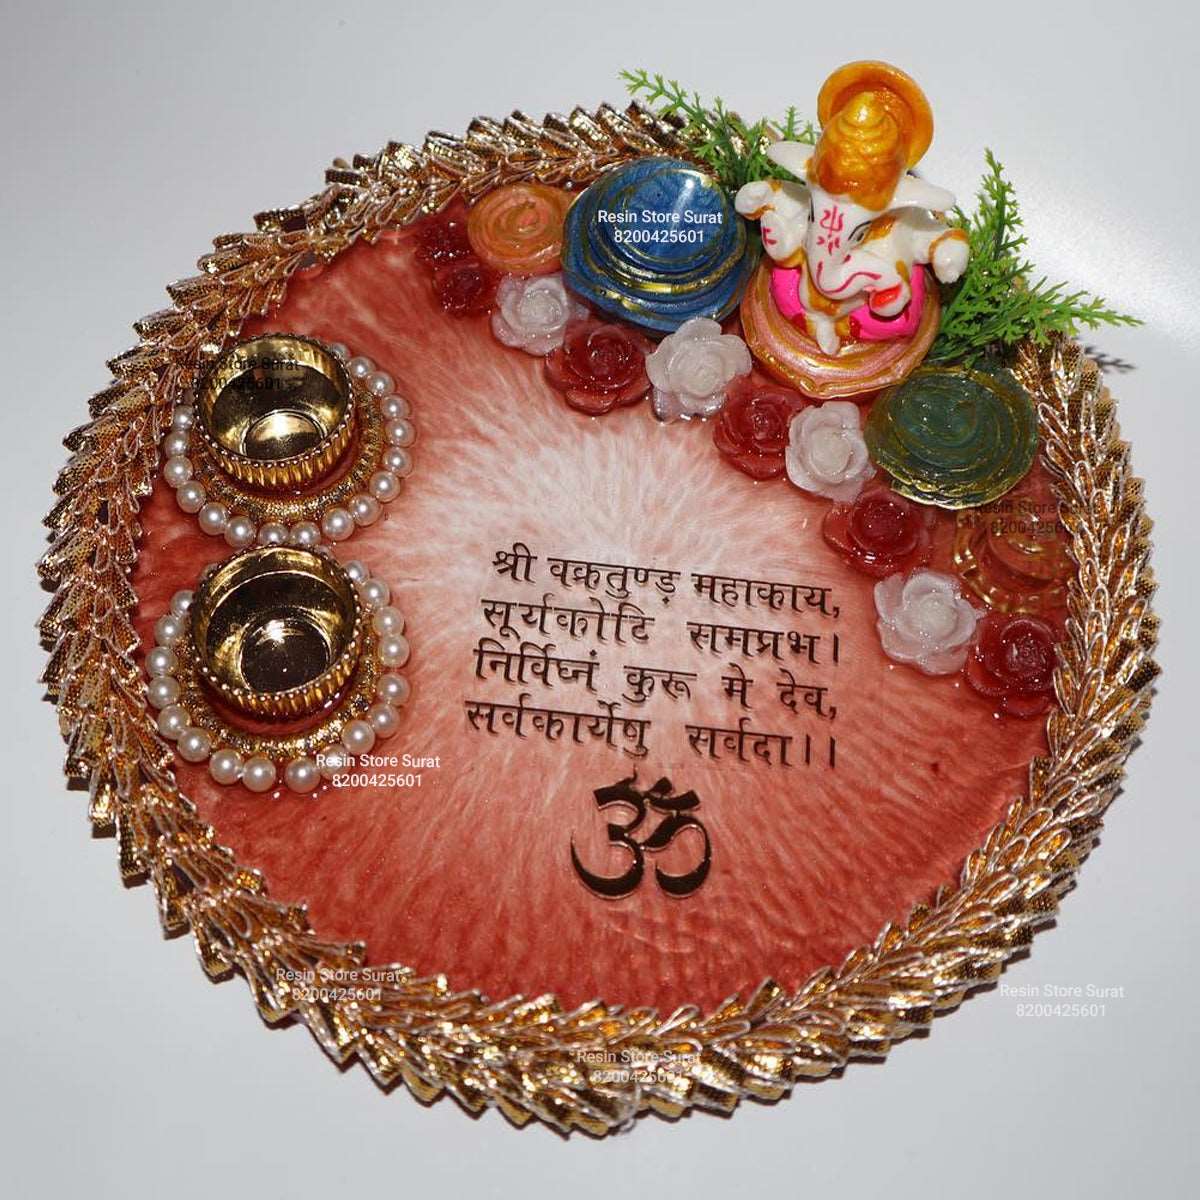 Resin Store Surat
8200425601
Resin Store Surat
8200425601
Resin Store Surat
8200425601
श्री वक्रतुण्ड़ महाकाय,
सूर्यकोटि समप्रभ।
निर्विघ्नं कुरू मे देव,
सर्वकार्येषु सर्वदा।।
Resin Store Surat
8200425601
ॐ
Resin Store Surat
8200425601
Resin Store Surat
8200425601
Resin Store Surat
8200425601